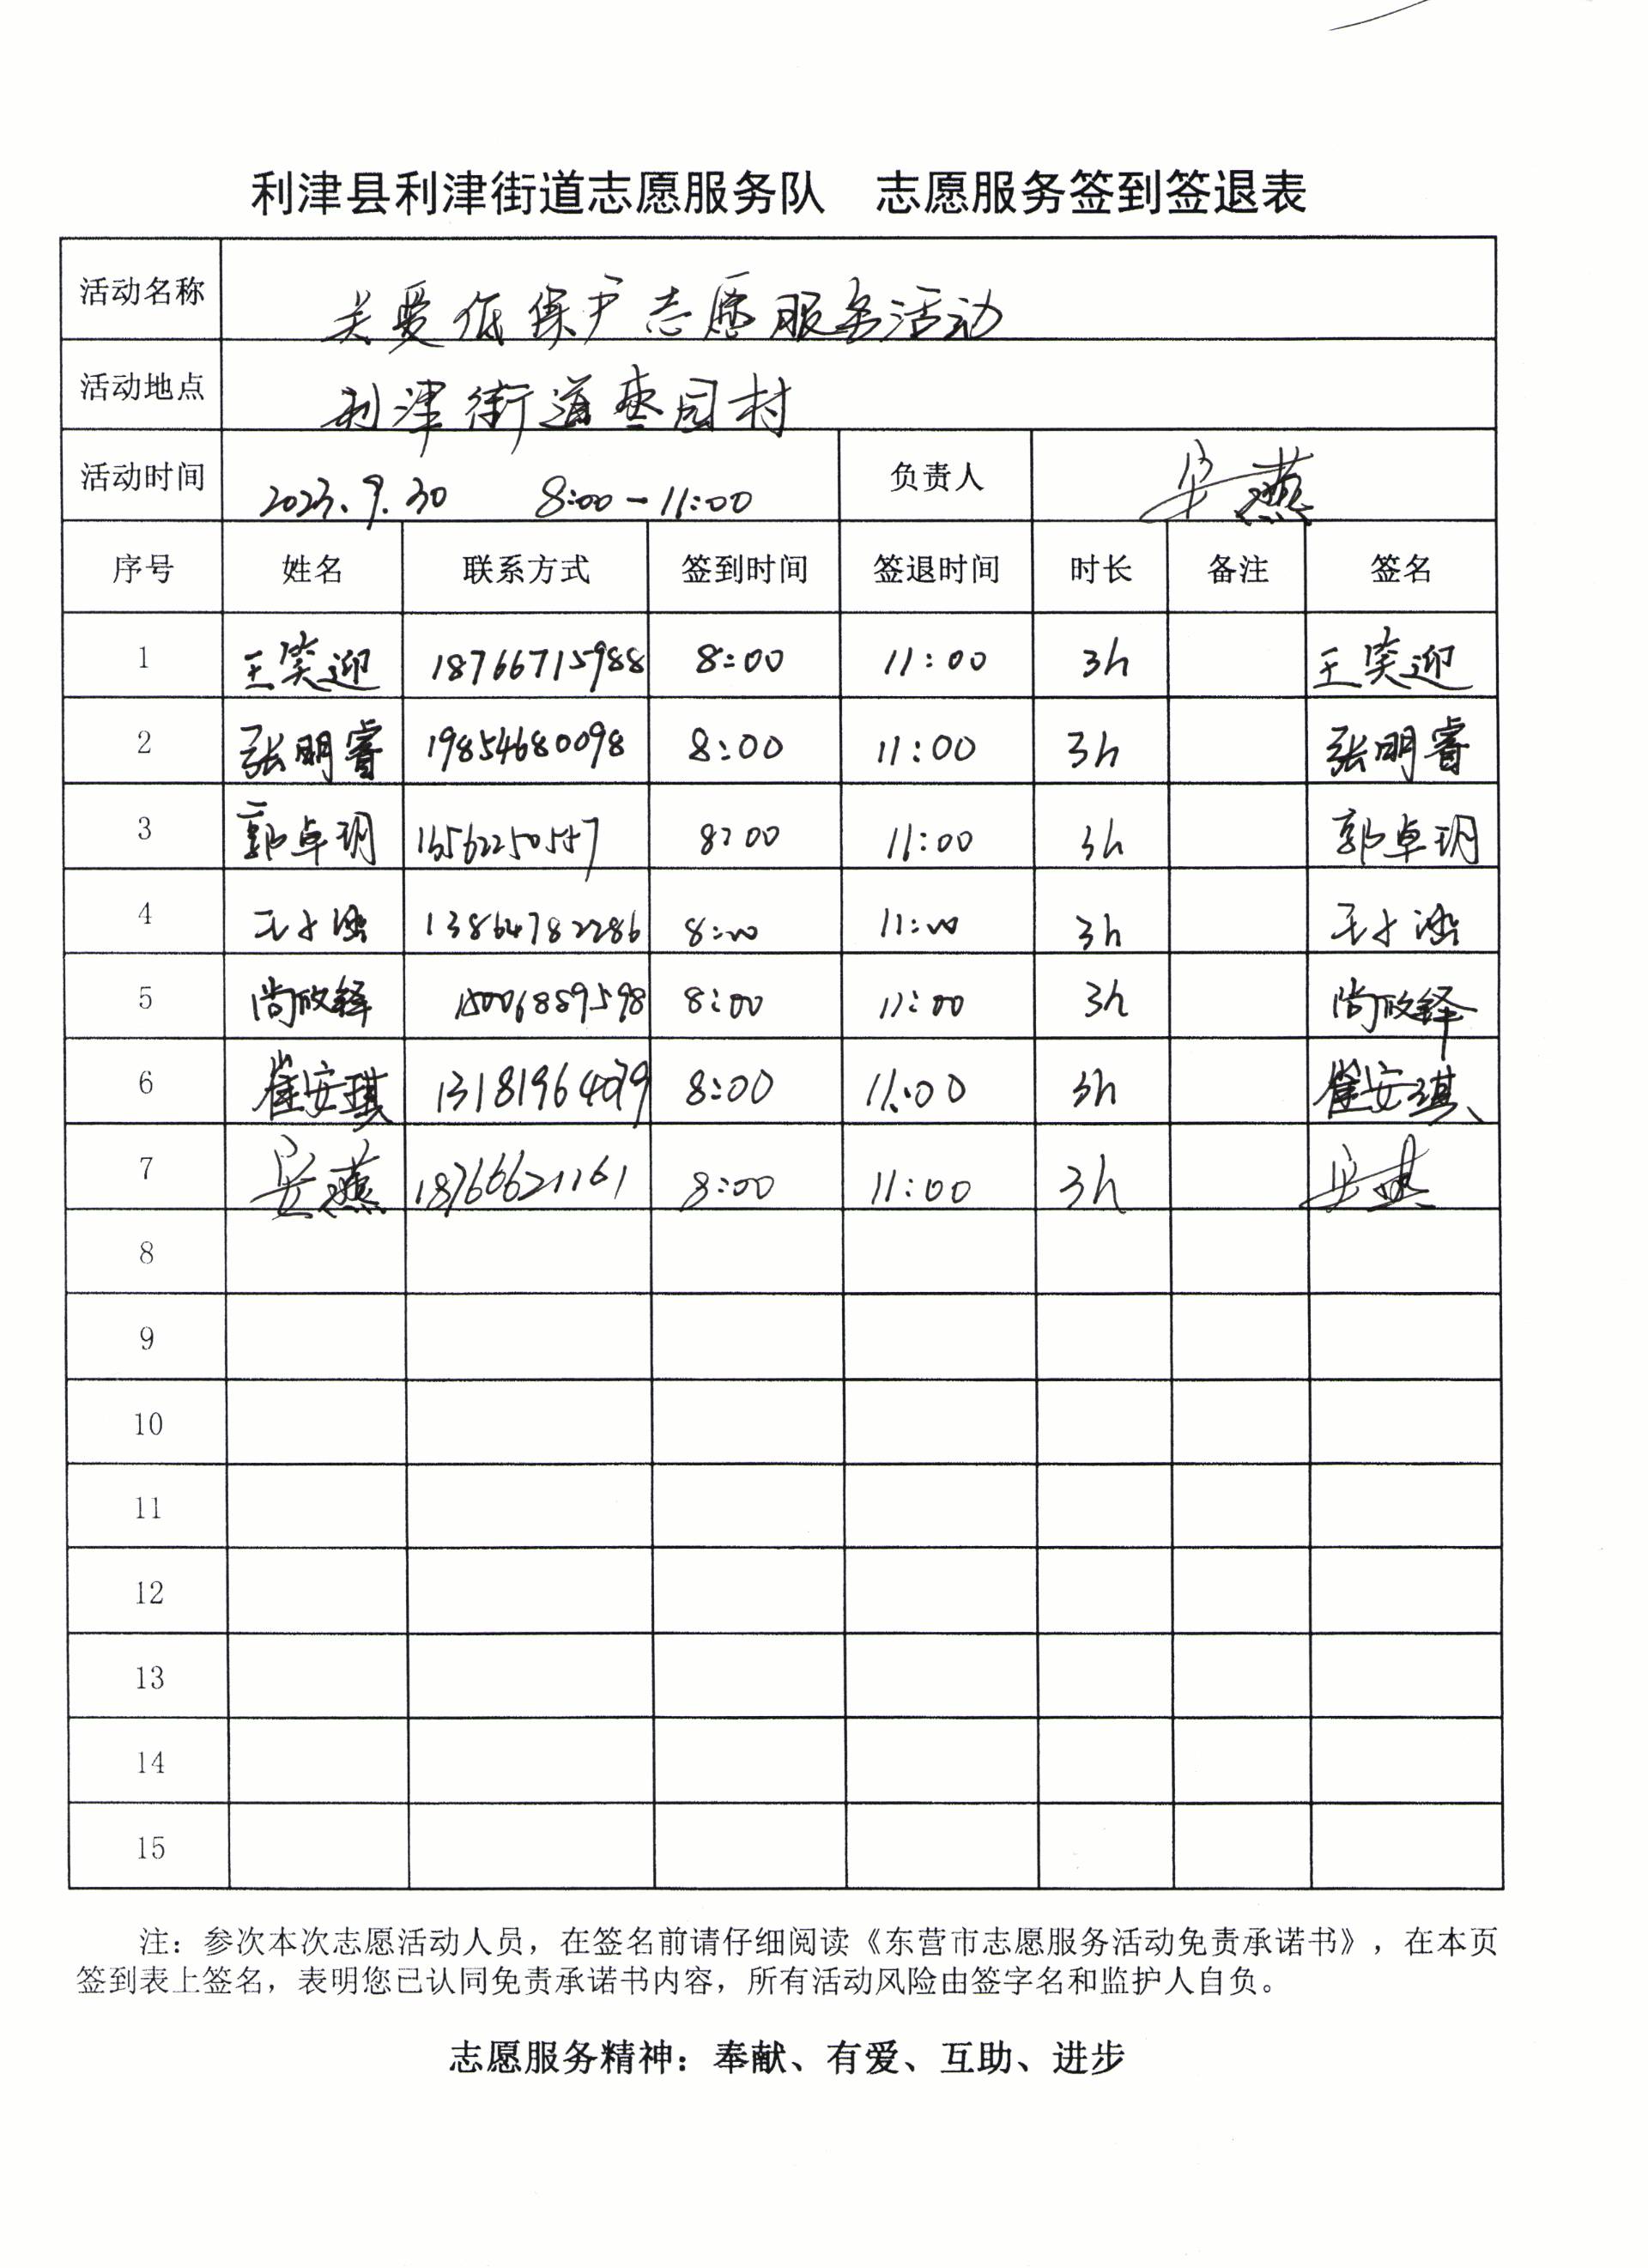 利津县利津街道志愿服务队 志愿服务签到签退表
活动名称 关爱低保户志愿服务活动
活动地点 利津街道枣园村
活动时间 2023.9.30 8:00-11:00 负责人 安燕
序号 姓名 联系方式 签到时间 签退时间 时长 备注 签名
1 王笑迎 18766715988 8:00 11:00 3h 王笑迎
2 张明睿 19854680098 8:00 11:00 3h 张明睿
3 郭卓玥 8:00 11:00 3h 郭卓玥
4 13864782286 8:00 11:00 3h
5 15006889598 8:00 11:00 3h
6 崔安琪 8:00 11:00 3h 崔安琪
7 安燕 18766621161 8:00 11:00 3h 安燕
8
9
10
11
12
13
14
15
注：参次本次志愿活动人员，在签名前请仔细阅读《东营市志愿服务活动免责承诺书》，在本页
签到表上签名，表明您已认同免责承诺书内容，所有活动风险由签字名和监护人自负。
志愿服务精神：奉献、有爱、互助、进步